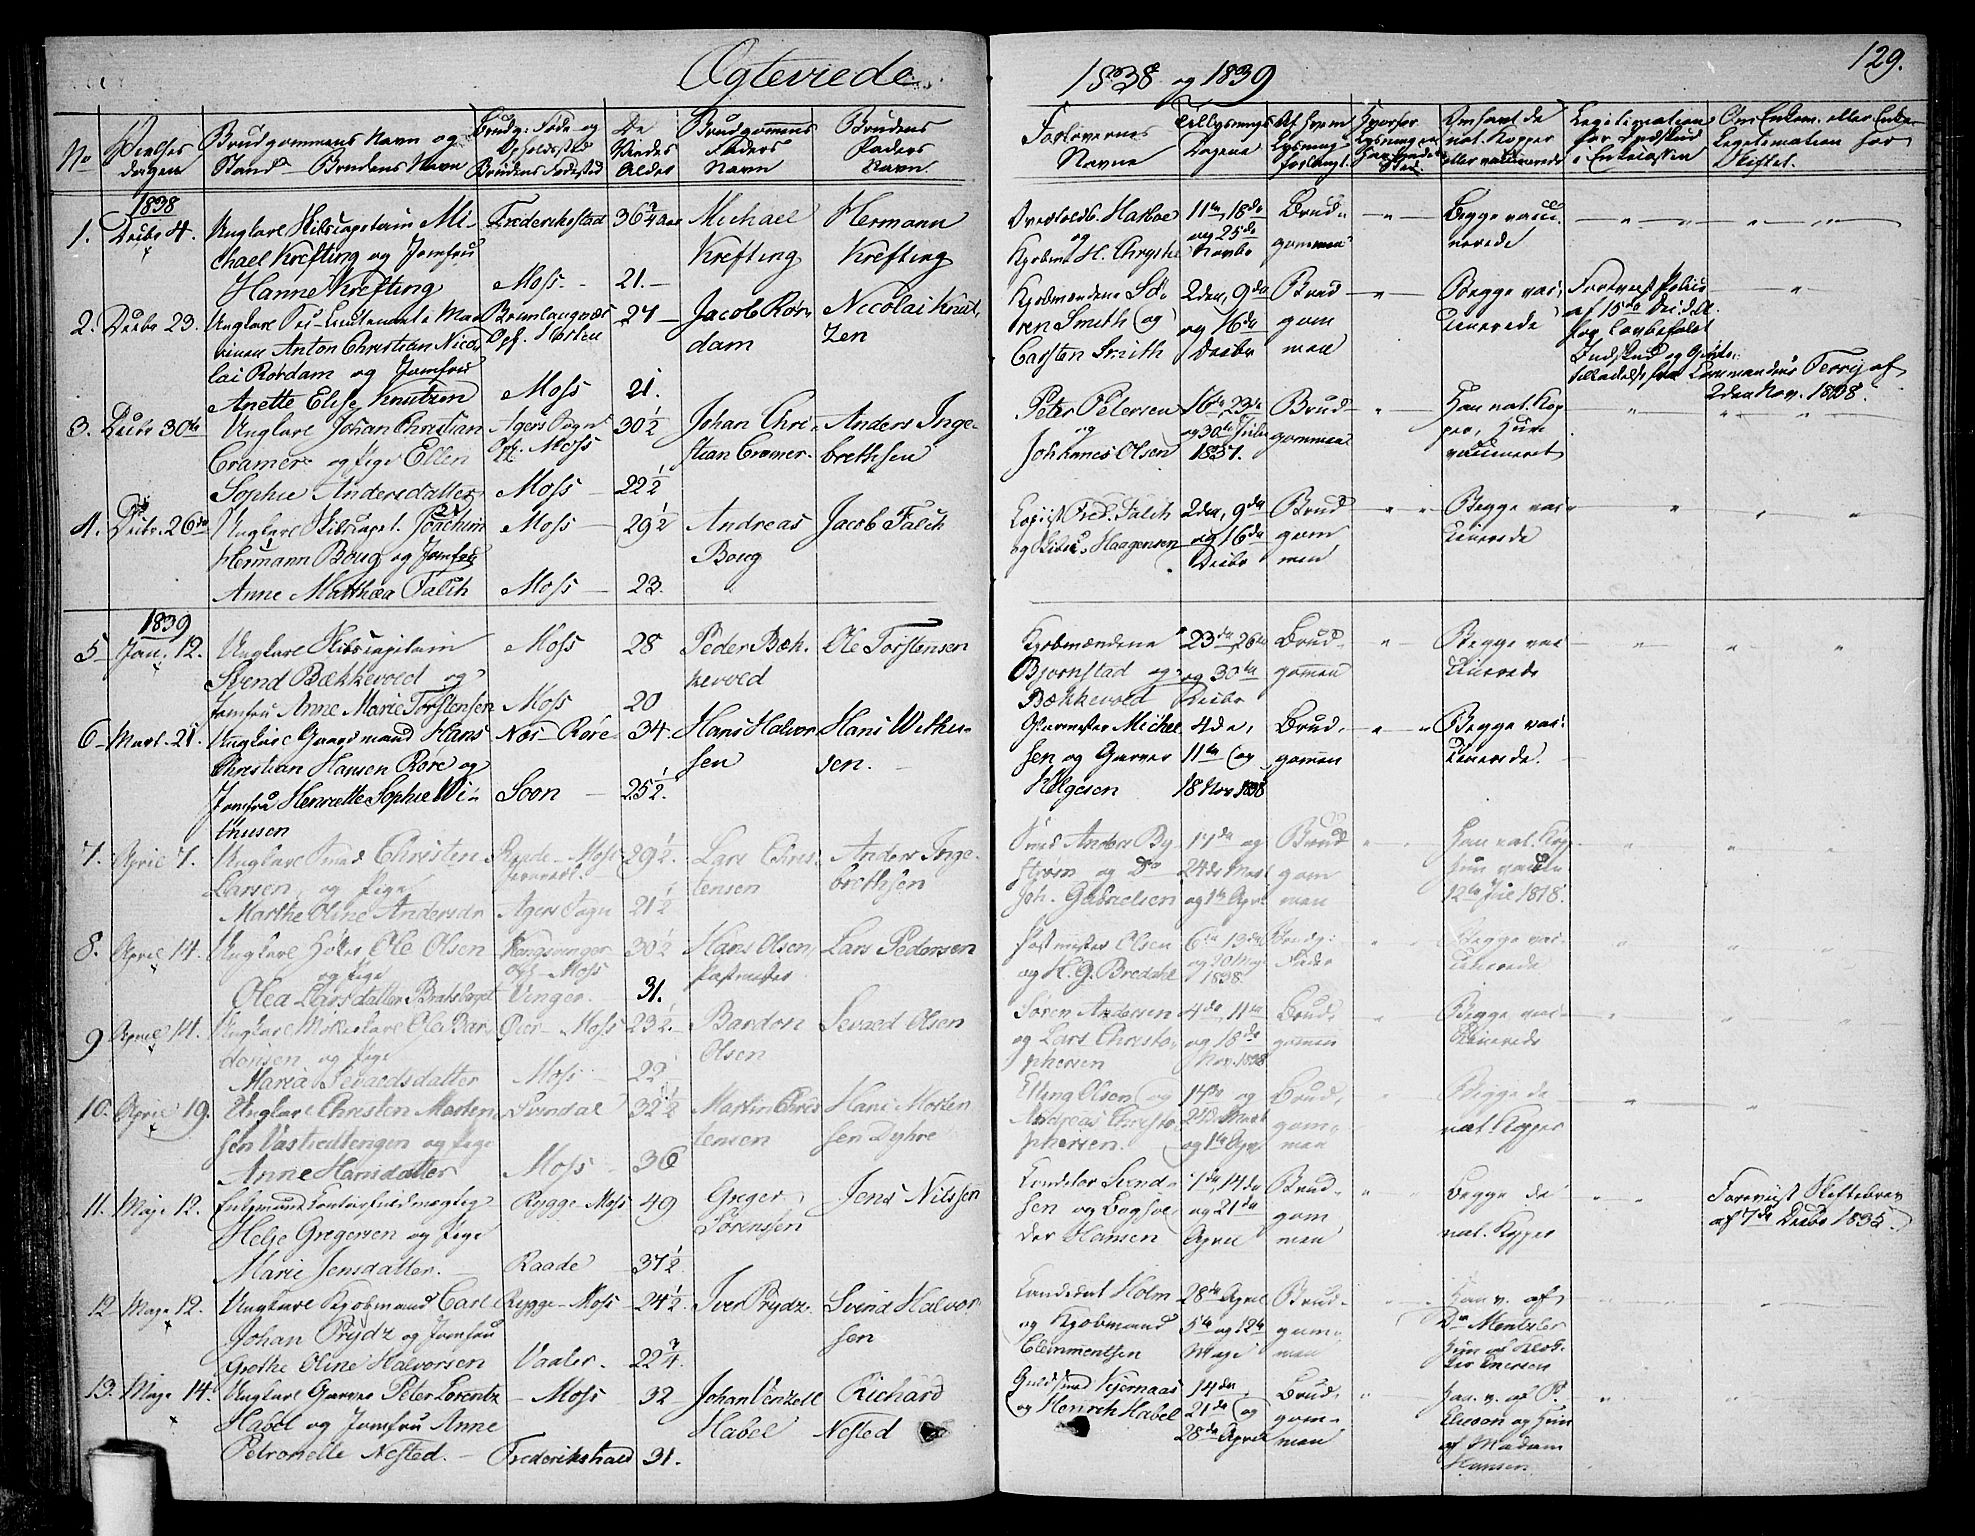 Ægteviede
1838 og 1839
129.
No
Vielses
dagen
Brudgommens Navn og
Stand Brudens Navn
Brudg: Føde og
Opholdssted
Brudens Fødested
De
Viedes
Alder
Brudgommens
Faders
Navn
Brudens
Faders
Navn
Forlovernes
Navne
Tillysnings
Dagene
Af hvem
Lysning
forlangt
Hvorfor
Lysningen
Om havt de
nat. Kopper
eller vaccinerede
Legitimation
for Indskud
i Enkecassen
Om Enkem. eller Enke
Legitimation for
Skiftet.
1838
1. Decbr 4. Ungkarl Skibscapitain Mi-
chael Krefting og Jomfru
Hanne Krefting
Frederikstad 36 3/4 Aar
Moss - 21. -
Michael
Krefting
Hermann
Krefting
og
Kjøbmd H. Chrystie
11te, 18de
og 25de
Novbr
Brud-
gommen
Begge vacci
nerede
2. Decbr 23. Ungkarl Pr: Lieutenant i Ma
rinen Anton Christian Nico-
lai Rørdam og Jomfru
Anette Elise Knutzen
Oph. Horten
27
Moss 21
Jacob Rør-
dam
Nicolai Knut
zen
Kjøbmændene Sø-
ren Smith og
Carsten Smith
2den, 9de
og 16de
Decbr
Brud
gom
men
Begge vac-
cinerede
Foreviist Police
af 15de Decbr.
for lovbefalet
Indskud og Gifte-
tilladelse fra Commandeur Ferry af
2den Nov. 1838.
3. Decbr 30te Ungkarl Johan Christian
Cramer og Pige Ellen
Sophie Andersdatter
Agers Sogn
Oph. Moss
30 1/2
Moss 22 1/2
Johan Chri-
stian Cramer
Anders Inge-
brethsen
Peter Petersen
og
Johannes Olsen
16de, 23de
og 30te Julii
1837.
Brud-
gommen
Han nat. Kop
per, Hun
vaccineret
4. Decbr. 26de Ungkarl Skibscapt. Joachim
Hermann Boug og Jomfru
Anne Matthea Falch
Moss 29 1/2
Moss 23.
Andreas
Boug
Jacob Falch
Copist Fred. Falch
og Haagensen
2den, 9de
og 16de
Decbr
Brud
gom
men
Begge vac-
cinerede
1839
5 Jan. 12. Ungkarl Skibscapitain
Svend Bækkevold og
Jomfru Anne Marie Torstensen
Moss 28
Moss 20
Peder Bæk-
kevold
Ole Torstensen
Kjøbmændene
Bjørnstad og
Bækkevold
23de, 26de
og 30te
Decbr
Brud-
gommen
Begge vac-
cinerede
6 Mart. 21. Ungkarl Gaardmand Hans
Christian Hansen Røre og
Jomfru Henriette Sophie Wi-
thusen
Næs - Røre 34.
Soon 25 1/2.
Hans Halvor
sen
Hans Withu-
sen.
Glarmester Michel
sen og Garver
Helgesen
4de,
11te og
18 Nov. 1838
Brud-
gommen
Begge vac-
cinerede.
7. April 7. Ungkarl Smed Christen
Larsen, og Pige
Marthe Oline Andersdr
Raade - Moss 29 1/2.
Agers Sogn 21 1/2
Lars Chris-
tensen
Anders Inge-
brethsen
Smed Anders By
strøm og Do
Joh. Gabrielsen
17de og
24de Mart
og 1te April
Brud
gom
men
Han nat. Kop
Hun vaccin
12te Jul 1818.
8. April 14. Ungkarl Ole Olsen
og Pige
Olea Larsdatter Bratsberget
Kongsvinger
oph. Moss
30 1/2
Vinger. 31.
Hans Olsen,
Postmester
Lars Pedersen
Postmester Olsen
og H. G. Bredahl
6te 13de
og 20 Maji
1838.
Brudg:
Fader
Begge vac-
cinerede
9 April 14. Ungkarl Ole Bar-
densen og Pige
Maria Sevaldsdatter
Oier - Moss 23 1/2
Moss 22
Bardon
Olsen
Sevald Olsen
Søren Andersen
og Lars Christo-
phersen
4de, 11te
og 18de
Nov. 1838
Brud-
gommen
Begge vac-
cinerede
10. April 19. Ungkarl Christen Morten-
sen Vastvedtengen og Pige
Anne Hansdatter
Svindal 32 1/2
Moss 36
Martin Chris
tensen
Hans Morten
sen Dyhre
Elling Olsen og
Andreas Christo
phersen.
17de og
24de Mart
og 1te April
Brud-
gom-
men
Begge de
nat. Kopper
11. Maji 12. Enkemand
Helje Gregersen og Pige
Marie Jensdatter.
Rygge - Moss 49
Raade 37 1/2
Greger
Sørensen
Jens Nilssen
Svend-
sen og Bogfol
der Hansen
7de, 14de
og 21de
April
Brud-
gom
men
Begge de
nat. Kopper
Foreviist Skiftebrev
af 7de Decbr 1835.
12 Maji 12. Ungkarl Kjøbmand Carl
Johan Prydz og Jomfru
Grethe Oline Halvorsen
Rygge - Moss 24 1/2
Vaaler. 22 3/4.
Iver Prydz.
Svend Halvor
sen
Candidat Holm
og Kjøbmand
Clemmentsen
28de April
5te og 12te
Maji
Brud-
gom-
men
Han v. af
Dr Mentzler
Hun af Dok-
tor Iversen
13. Maji 14. Ungkarl Garver Peter Lorentz
Habel og Jomfru Anne
Petronelle Nested. -
- Moss 32
Frederikshald 31.
Johan Venzell
Habel
Richard
Nested
Guldsmed Kjernaas
og Henrich Habel
14de,
21de og
28de April
Brud-
gom-
men
Han v. af P.
Eliesen og Hun
af Madam
Hansen